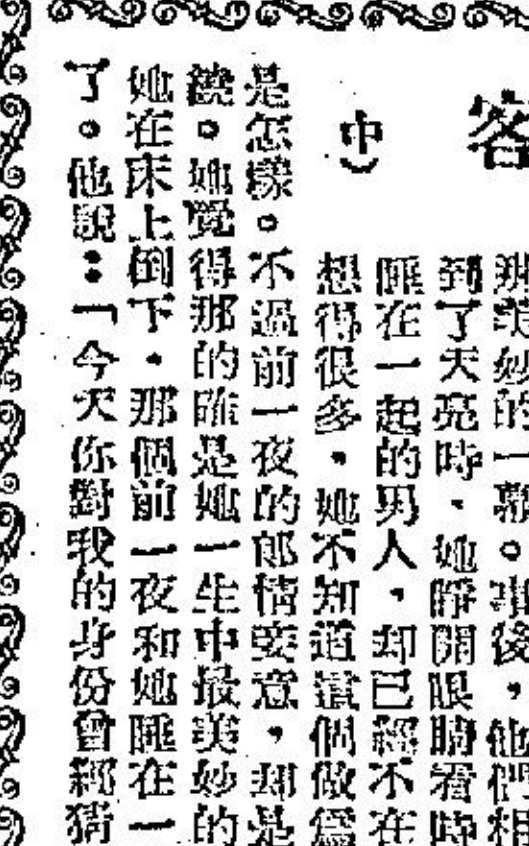 客
中
那美妙的一幕。事後，他們相
到了天亮時，她睜開眼睛看時
睡在一起的男人，却已經不在
想得很多，她不知道這個做爲
是怎樣。不過前一夜的郎情妾意，却是
繞。她覺得那的確是她一生中最美妙的
她在床上倒下，那個前一夜和她睡在一
了。他說：「今天你對我的身份曾經猜